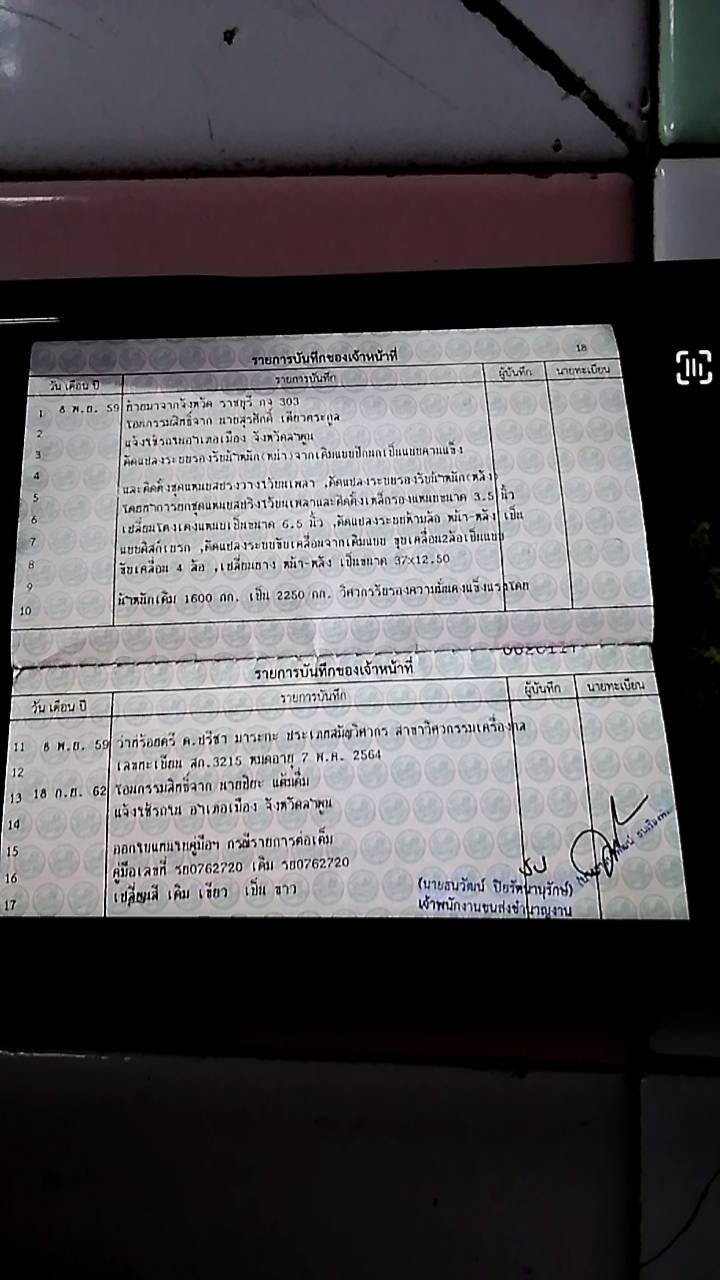 18
รายการบันทึกของเจ้าหน้าที่
วัน เดือน ปี รายการบันทึก ผู้บันทึก นายทะเบียน
1 8 พ.ย. 59 ย้ายมาจากจังหวัด ราชบุรี กจ 303
2 โอนกรรมสิทธิ์จาก นายสุรศักดิ์ เตียวตระกูล
3 แจ้งใช้รถในอำเภอเมือง จังหวัดลำพูน
4 ดัดแปลงระบบรองรับน้ำหนัก(หน้า)จากเดิมแบบปีกนกเป็นแบบคานแข็ง
5 และติดตั้งชุดแหนบสปริงวางไว้บนเพลา ,ดัดแปลงระบบรองรับน้ำหนัก(หลัง)
6 โดยทำการยกชุดแหนบสปริงไว้บนเพลาและติดตั้งเหล็กรองแหนบขนาด 3.5 นิ้ว
7 เปลี่ยนโตงเตงแหนบเป็นขนาด 6.5 นิ้ว ,ดัดแปลงระบบห้ามล้อ หน้า-หลัง เป็น
8 แบบดิสก์เบรก ,ดัดแปลงระบบขับเคลื่อนจากเดิมแบบ ขับเคลื่อน2ล้อเป็นแบบ
9 ขับเคลื่อน 4 ล้อ ,เปลี่ยนยาง หน้า-หลัง เป็นขนาด 37×12.50
10 น้ำหนักเดิม 1600 กก. เป็น 2250 กก. วิศวกรรับรองความมั่นคงแข็งแรงโดย
รายการบันทึกของเจ้าหน้าที่
วัน เดือน ปี รายการบันทึก ผู้บันทึก นายทะเบียน
11 8 พ.ย. 59 ว่าที่ร้อยตรี ด.ปรีชา มาระกะ ประเภทสามัญวิศวกร สาขาวิศวกรรมเครื่องกล
12 เลขทะเบียน สก.3215 หมดอายุ 7 พ.ค. 2564
13 18 ก.ย. 62 โอนกรรมสิทธิ์จาก นายปิยะ แต้มดื่ม
14 แจ้งใช้รถใน อำเภอเมือง จังหวัดลำพูน
15 ออกใบแทนใบคู่มือฯ กรณีรายการต่อเต็ม
16 คู่มือเลขที่ รย0762720 เดิม รย0762720
17 เปลี่ยนสี เดิม เขียว เป็น ขาว
(นายธนวัฒน์ ปิยรัตนานุรักษ์)
เจ้าพนักงานขนส่งชำนาญงาน